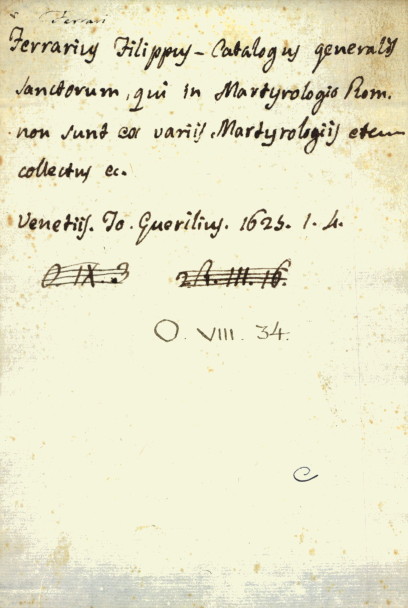 Ferrari
Ferrarius Filippus – Catalogus generalis
Sanctorum, qui in Martyrologio Rom.
non sunt ex variis Martyrologiis etc
collectus ec.
Venetiis. Jo. Guerilius. 1625. 1. 4.
O. IX. 3 2.R.III.16.
O. VIII. 34.
C